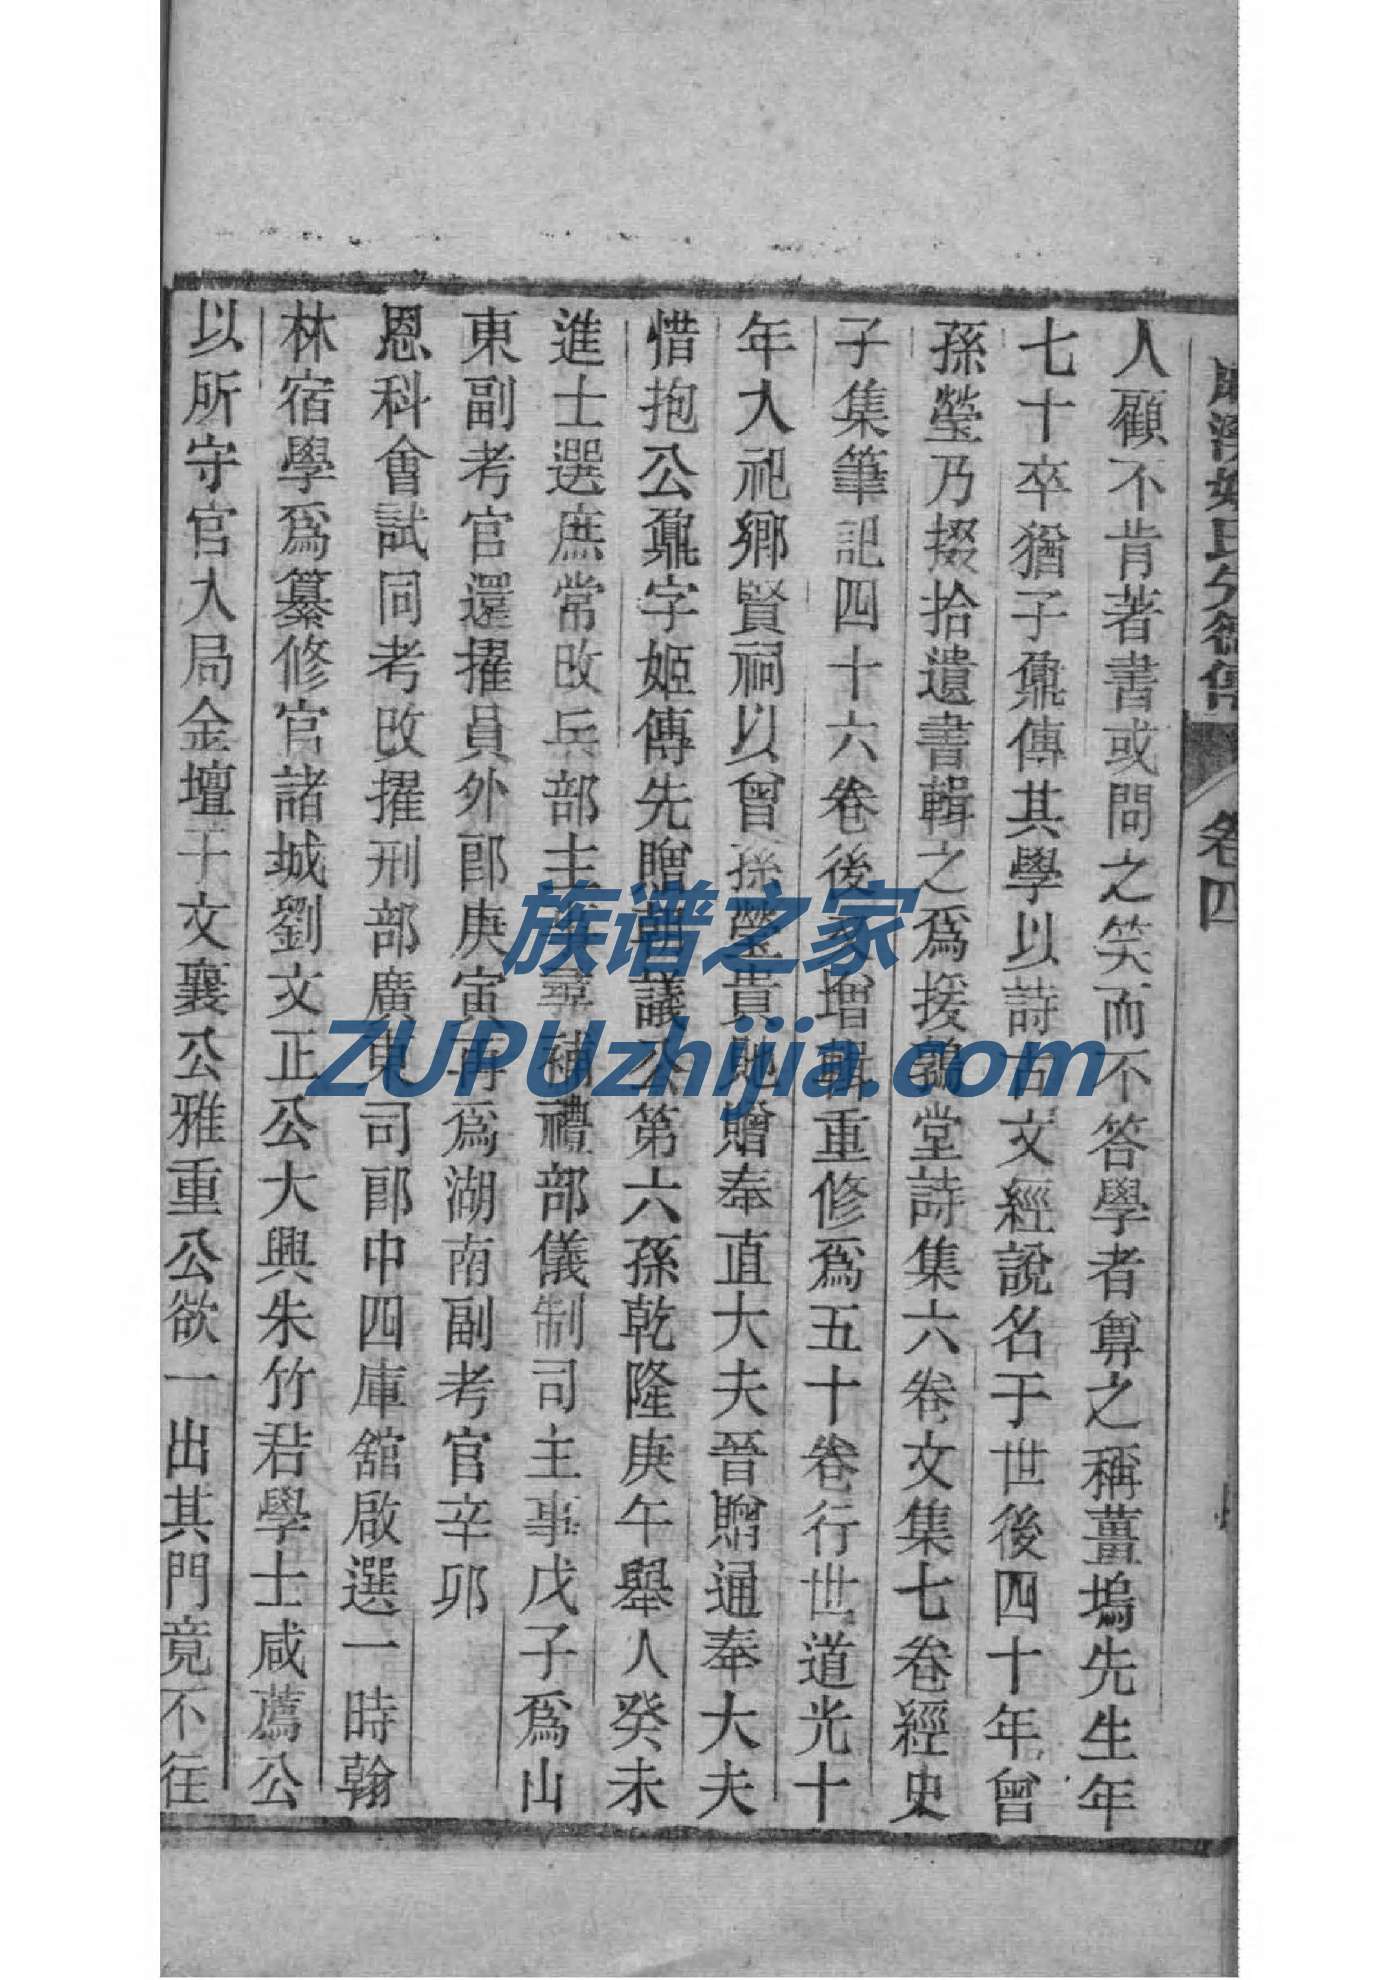 麻溪姚氏先德傳 卷四
人顧不肯著書或問之笑而不答學者尊之稱薑塢先生年
七十卒猶子鼐傳其學以詩古文經說名于世後四十年曾
孫瑩乃掇拾遺書輯之爲援鶉堂詩集六卷文集七卷經史
子集筆記四十六卷後又增輯重修爲五十卷行世道光十
年入祀鄉賢祠以曾孫瑩貴貤贈奉直大夫晉贈通奉大夫
惜抱公鼐字姬傳先贈朝議公第六孫乾隆庚午舉人癸未
進士選庶常改兵部主事尋補禮部儀制司主事戊子爲山
東副考官還擢員外郎庚寅再爲湖南副考官辛卯
恩科會試同考改擢刑部廣東司郎中四庫舘啟選一時翰
林宿學爲纂修官諸城劉文正公大興朱竹君學士咸薦公
以所守官入局金壇于文襄公雅重公欲一出其門竟不往
族谱之家
ZUPUzhijia.com